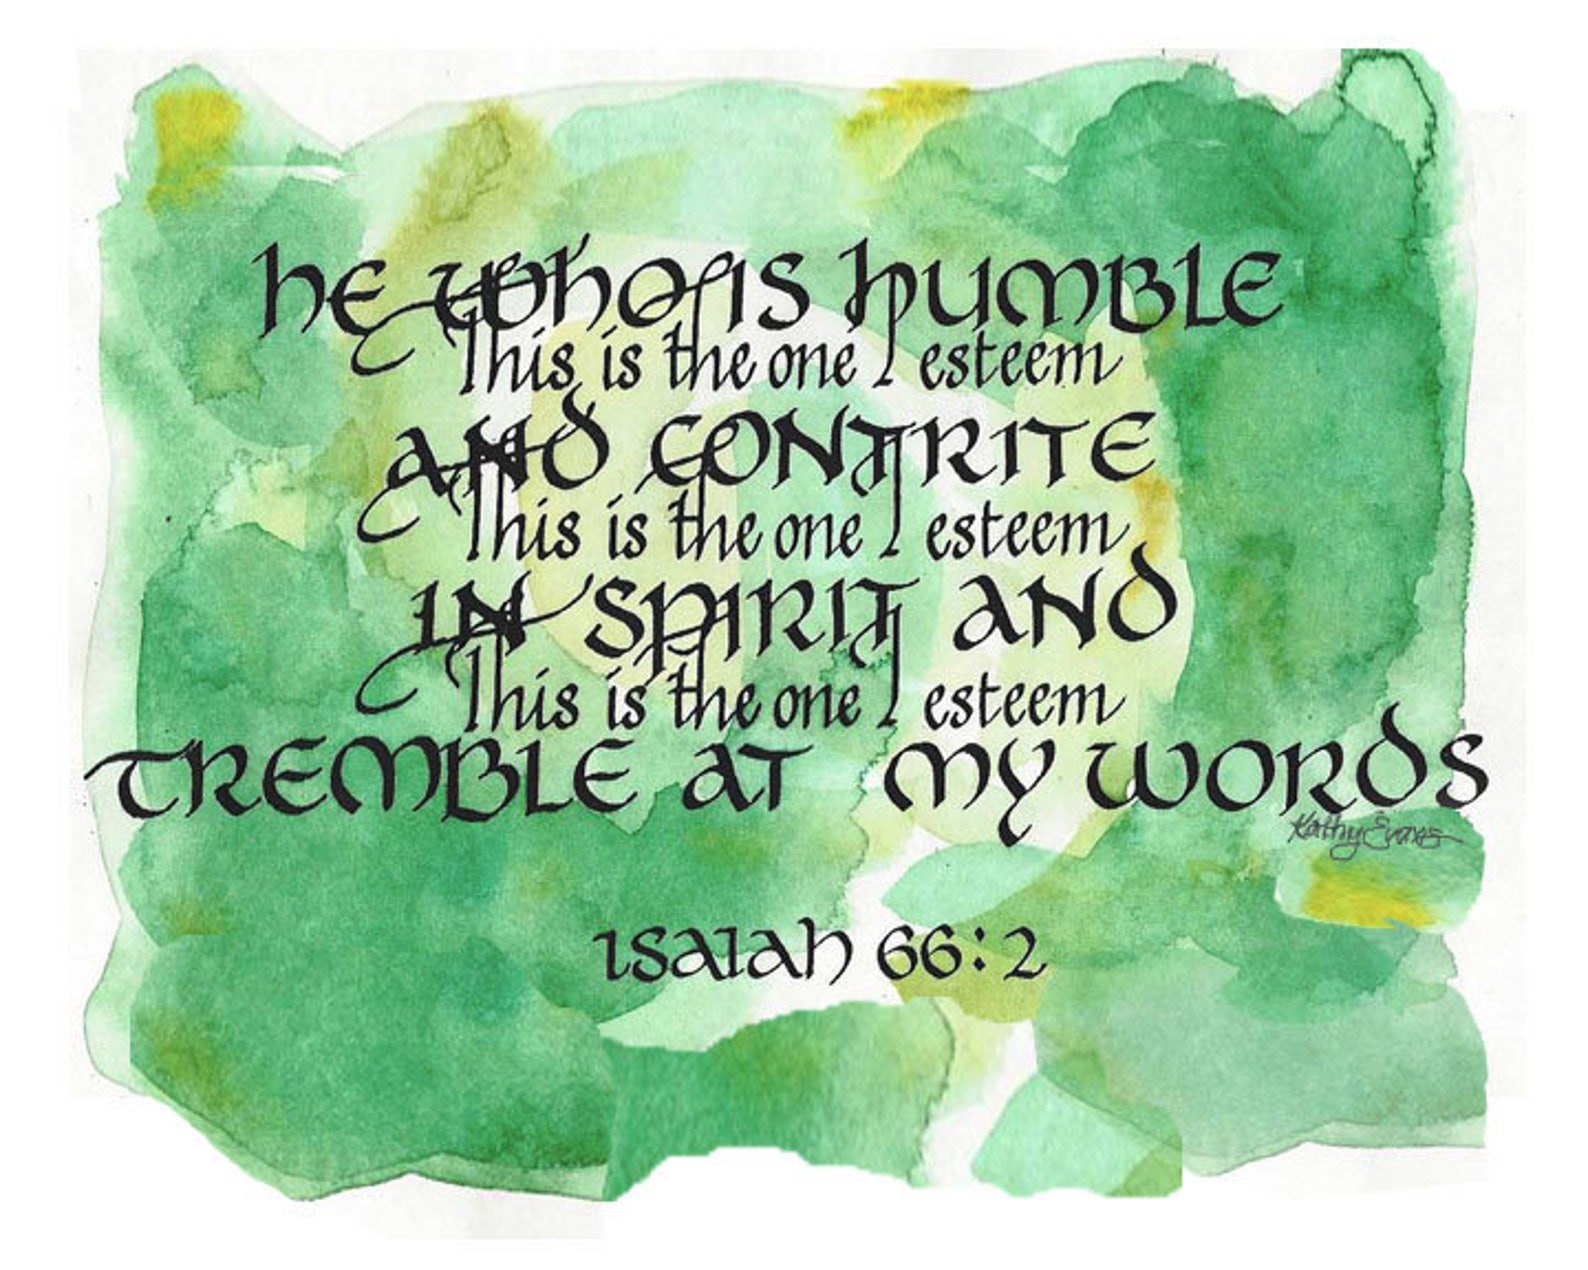 he who is humble
This is the one I esteem
and contrite
This is the one I esteem
in spirit and
This is the one I esteem
tremble at my words
Kathy Evans
isaiah 66:2